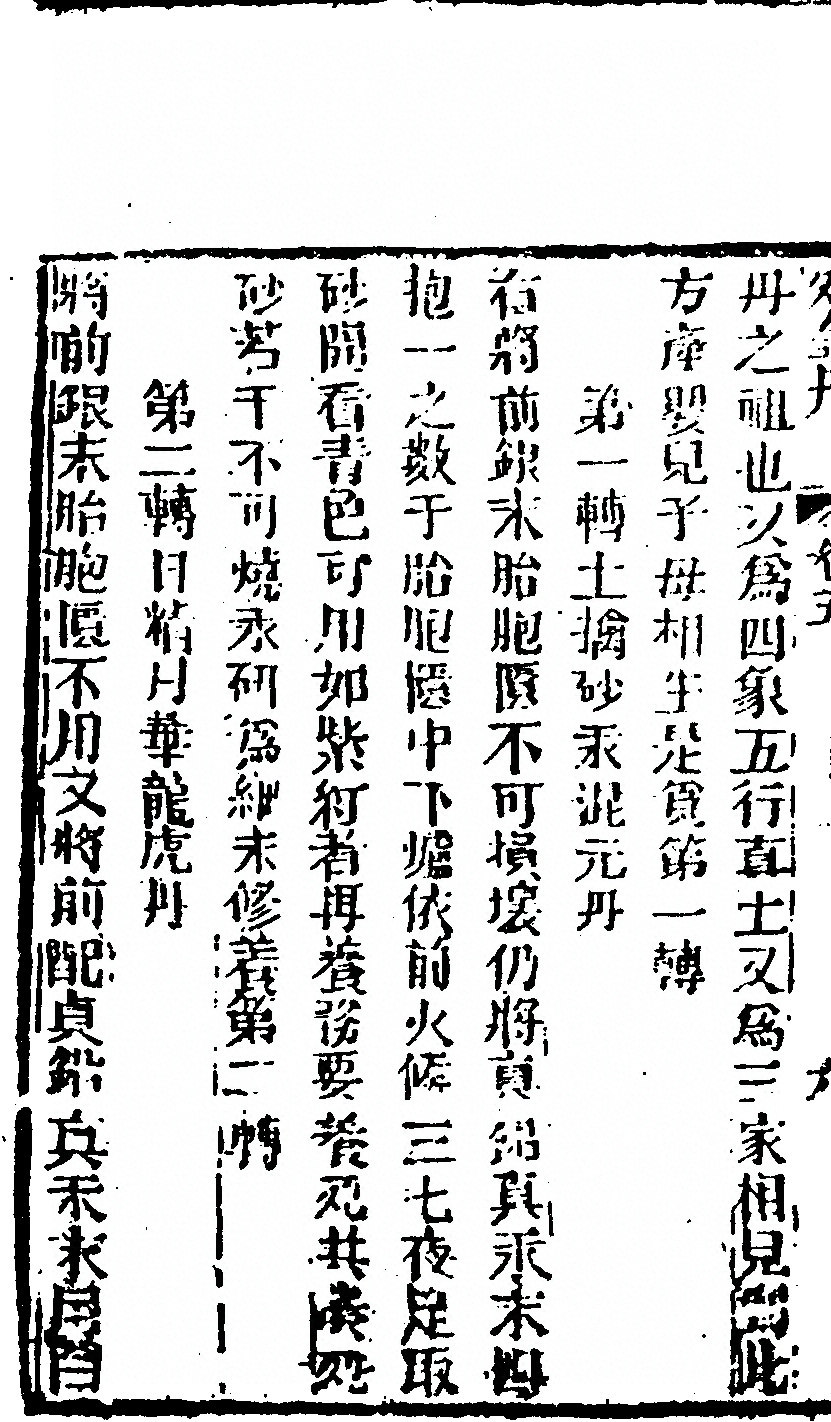 丹之祖也以為四象五行真土又為三家相見當此
方産嬰兒子母相生是真第一轉
第一轉土擒砂汞混元丹
右將前銀末胎胞匱不可損壞仍將真鉛真汞末四
抱一之數于胎胞匱中下爐依前火候三七夜足取
砂開看青色可用如紫紅者再養務要養死其
砂若干不可燒汞研為細末修養第二轉
第二轉日精月華龍虎丹
將前銀末胎胞匱不用文將前配貞鉛真汞末